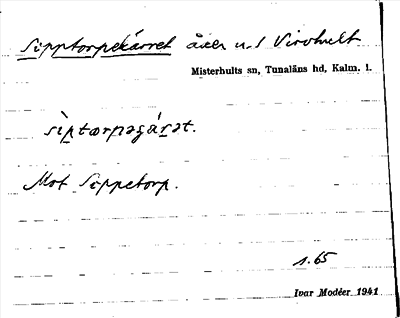 Sipptorpekärret åker u. / Virohult
Misterhults sn, Tunaläns hd, Kalm. l.
sìptorpəɟáṟət.
Mot Sippetorp.
1.65
Ivar Modéer 1941